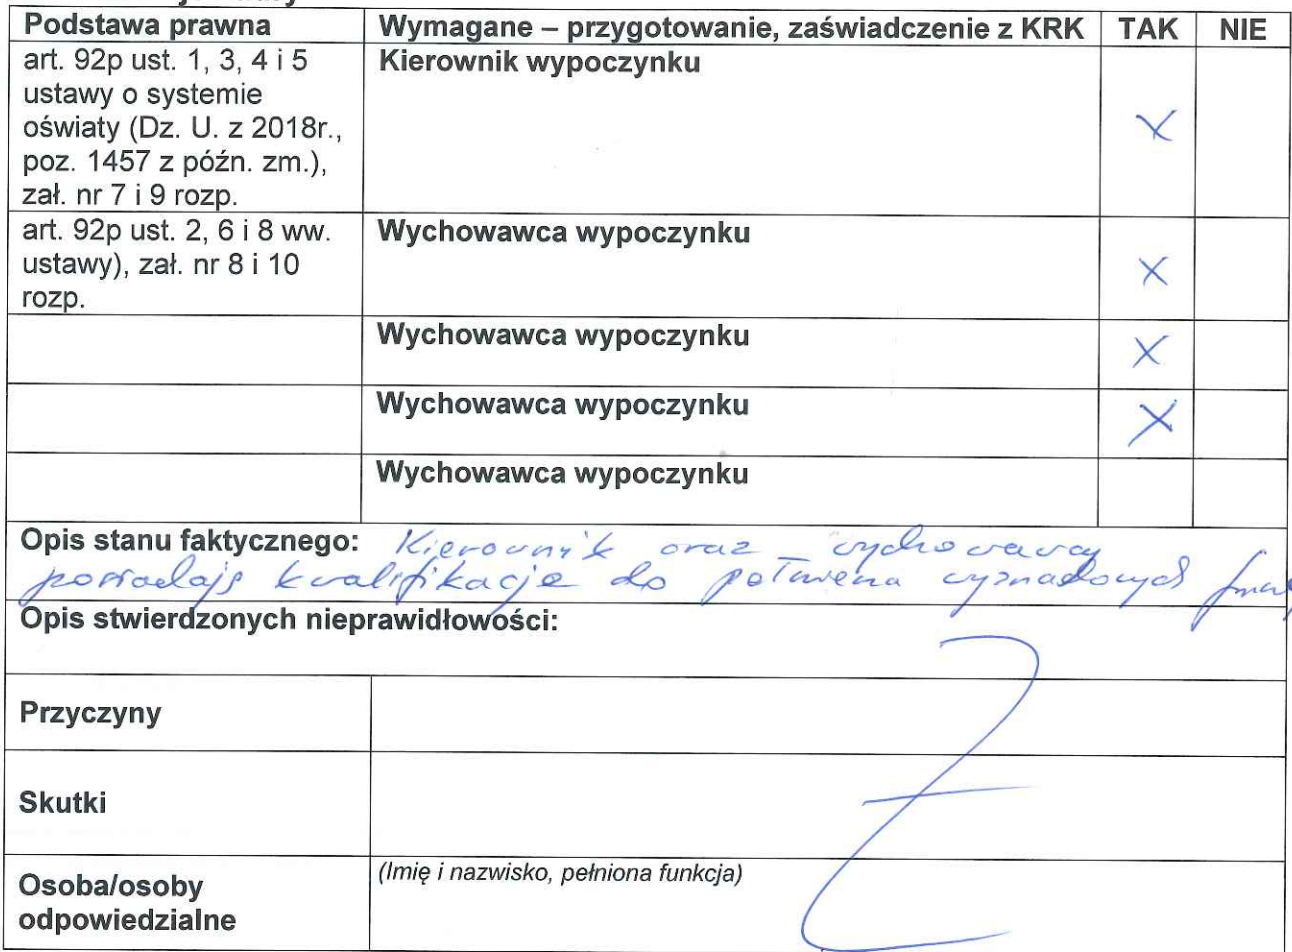 Podstawa prawna
Wymagane – przygotowanie, zaświadczenie z KRK
TAK
NIE
art. 92p ust. 1, 3, 4 i 5
ustawy o systemie
oświaty (Dz. U. z 2018r.,
poz. 1457 z późn. zm.),
zał. nr 7 i 9 rozp.
Kierownik wypoczynku
X
art. 92p ust. 2, 6 i 8 ww.
ustawy), zał. nr 8 i 10
rozp.
Wychowawca wypoczynku
X
Wychowawca wypoczynku
X
Wychowawca wypoczynku
X
Wychowawca wypoczynku
Opis stanu faktycznego: Kierownik oraz wychowawcy
posiadają kwalifikacje do pełnienia wyznaczonych
Opis stwierdzonych nieprawidłowości:
Przyczyny
Skutki
Osoba/osoby
odpowiedzialne
(Imię i nazwisko, pełniona funkcja)